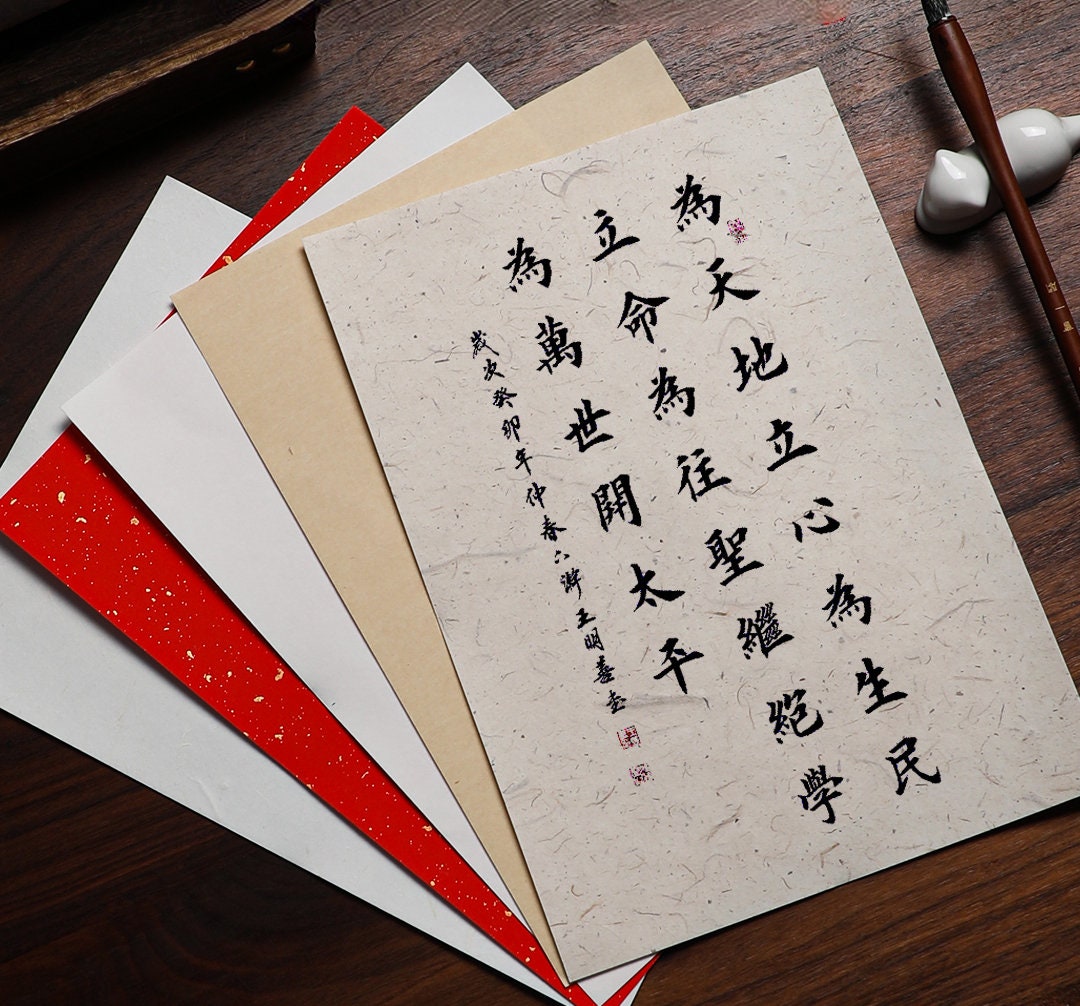 為天地立心為生民
立命為往聖繼絕學
為萬世開太平
歲次癸卯年仲春六游王明善書